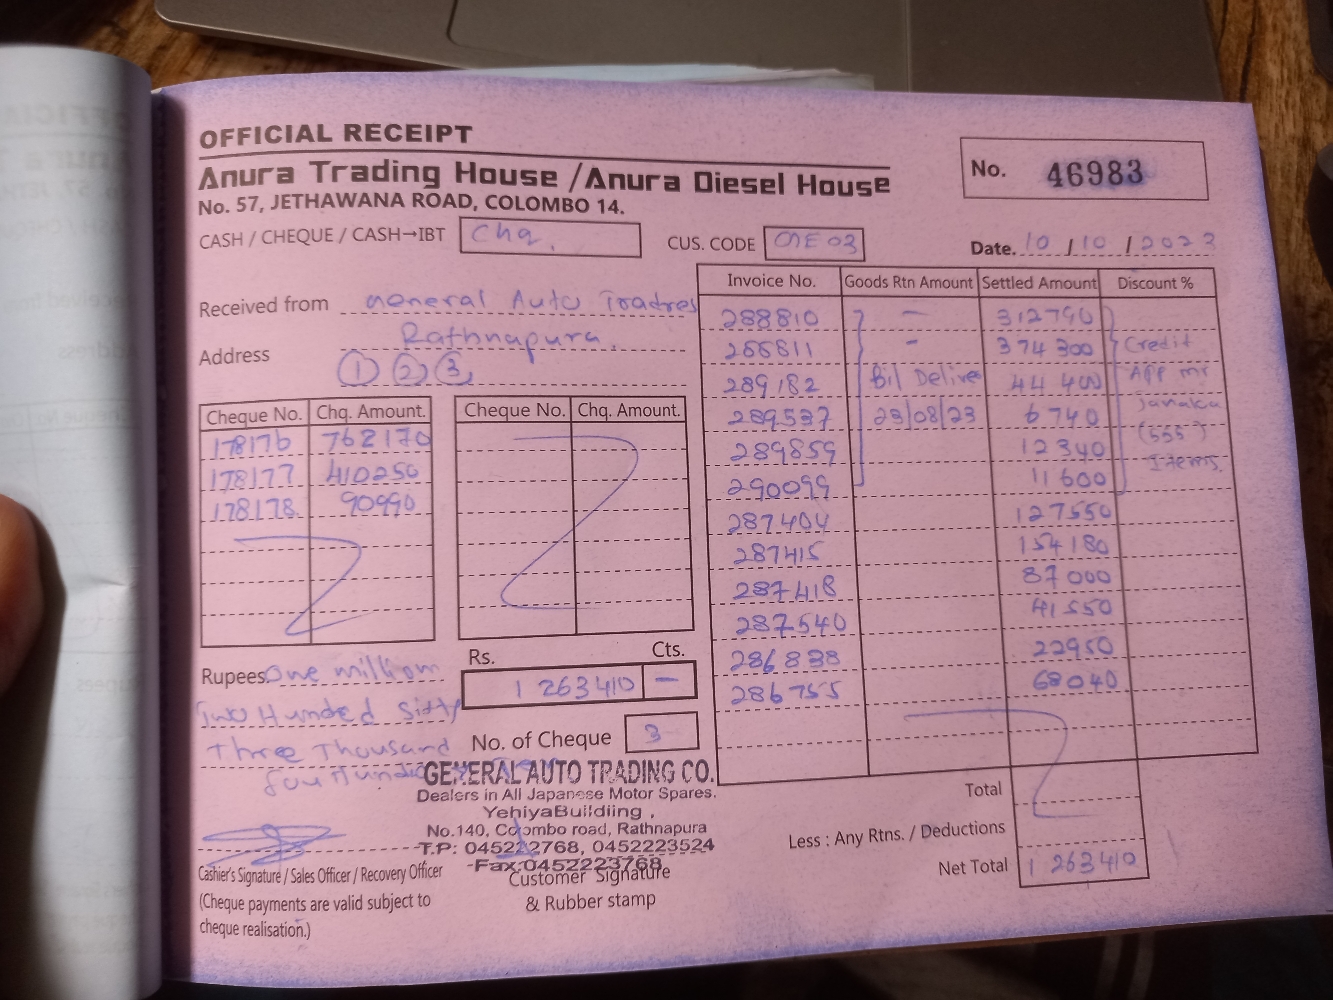 OFFICIAL RECEIPT
Anura Trading House / Anura Diesel House
No. 57, JETHAWANA ROAD, COLOMBO 14.
No. 46983
CASH / CHEQUE / CASH→IBT Chq.
CUS. CODE
Date. 10 / 10 / 2023
Received from General Auto Toadres
Address Rathnapura.
1 2 3
Cheque No. Chq. Amount.
178176 762170
178177 410250
178178 90990
Cheque No. Chq. Amount.
Invoice No. Goods Rtn Amount Settled Amount Discount %
288810 - 312790
288811 - 374300 Credit
289182 Bil Delive 44400 App mr
289537 23/08/23 6740 Janaka
289859 12340 (555)
290099 11600 Items.
287404 127550
287415 154180
287418 87000
287540 41550
286838 22950
286755 68040
Rupees One million
Two Hunded Sixty
Three Thousand
Four
Rs. Cts.
1 263410 -
No. of Cheque 3
GENERAL AUTO TRADING CO.
Dealers in All Japanese Motor Spares.
Yehiya Buildiing,
No.140, Colombo road, Rathnapura
T.P: 0452222768, 0452223524
Fax:0452223768
Cashier's Signature / Sales Officer / Recovery Officer
(Cheque payments are valid subject to
cheque realisation.)
Customer Signature
& Rubber stamp
Total
Less : Any Rtns. / Deductions
Net Total 1 263410